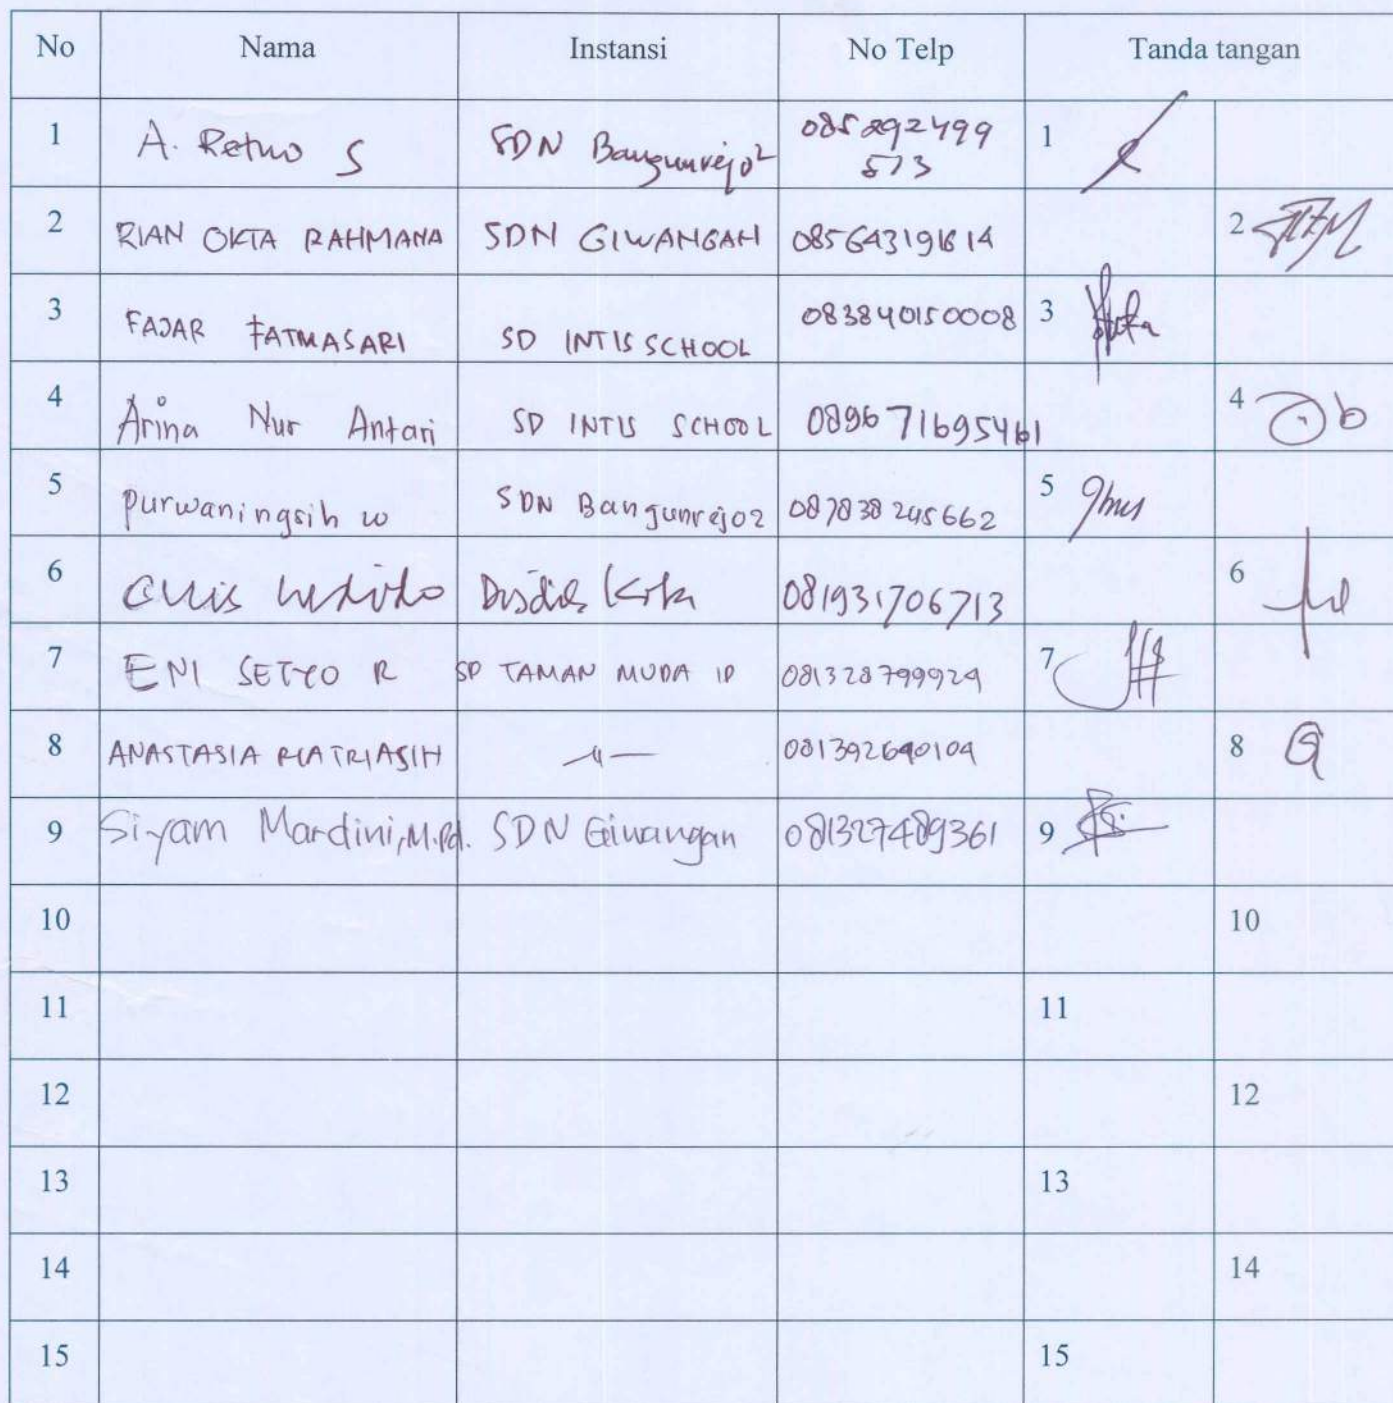 No Nama Instansi No Telp Tanda tangan
1 A. Retno S SDN Bangunrejo 2 085292499 1
573
2 RIAN OKTA RAHMANA SDN GIWANGAN 085643191614 2
3 FAJAR FATMASARI SD INTIS SCHOOL 083840150008 3
4 Arina Nur Antari SD INTIS SCHOOL 0896 71695461 4
5 purwaningsih w SDN Bangunrejo2 087838245662 5
6 Disdik Kota 081931706713 6
7 ENI SETYO R SD TAMAN MUDA IP 081328799929 7
8 ANASTASIA RIATRIASIH —〃— 081392690104 8
9 Siyam Mardini, M.Pd. SDN Giwangan 081327489361 9
10 10
11 11
12 12
13 13
14 14
15 15